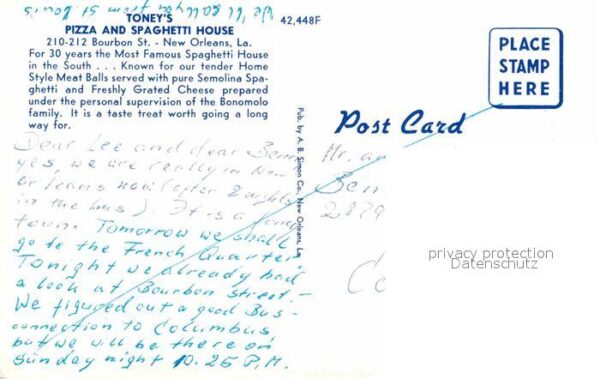 We'll call you from St. Louis
TONEY'S
PIZZA AND SPAGHETTI HOUSE
210-212 Bourbon St. - New Orleans, La.
For 30 years the Most Famous Spaghetti House
in the South . . . Known for our tender Home
Style Meat Balls served with pure Semolina Spa-
ghetti and Freshly Grated Cheese prepared
under the personal supervision of the Bonomolo
family. It is a taste treat worth going a long
way for.
42,448F
Dear Lee and dear
yes, we are really in New
Orleans now (after 2 nights
in the bus). It is a
town. Tomorrow we shall
go to the French Quarter
Tonight we already had
a look at Bourbon street.-
We figured out a good Bus-
connection to Columbus
but we will be there on
Sunday night 10.25 P.M.
Pub. by A. B. Simon Co., New Orleans, La.
PLACE
STAMP
HERE
Post Card
Mr. a
Ben
2879
Co
privacy protection
Datenschutz